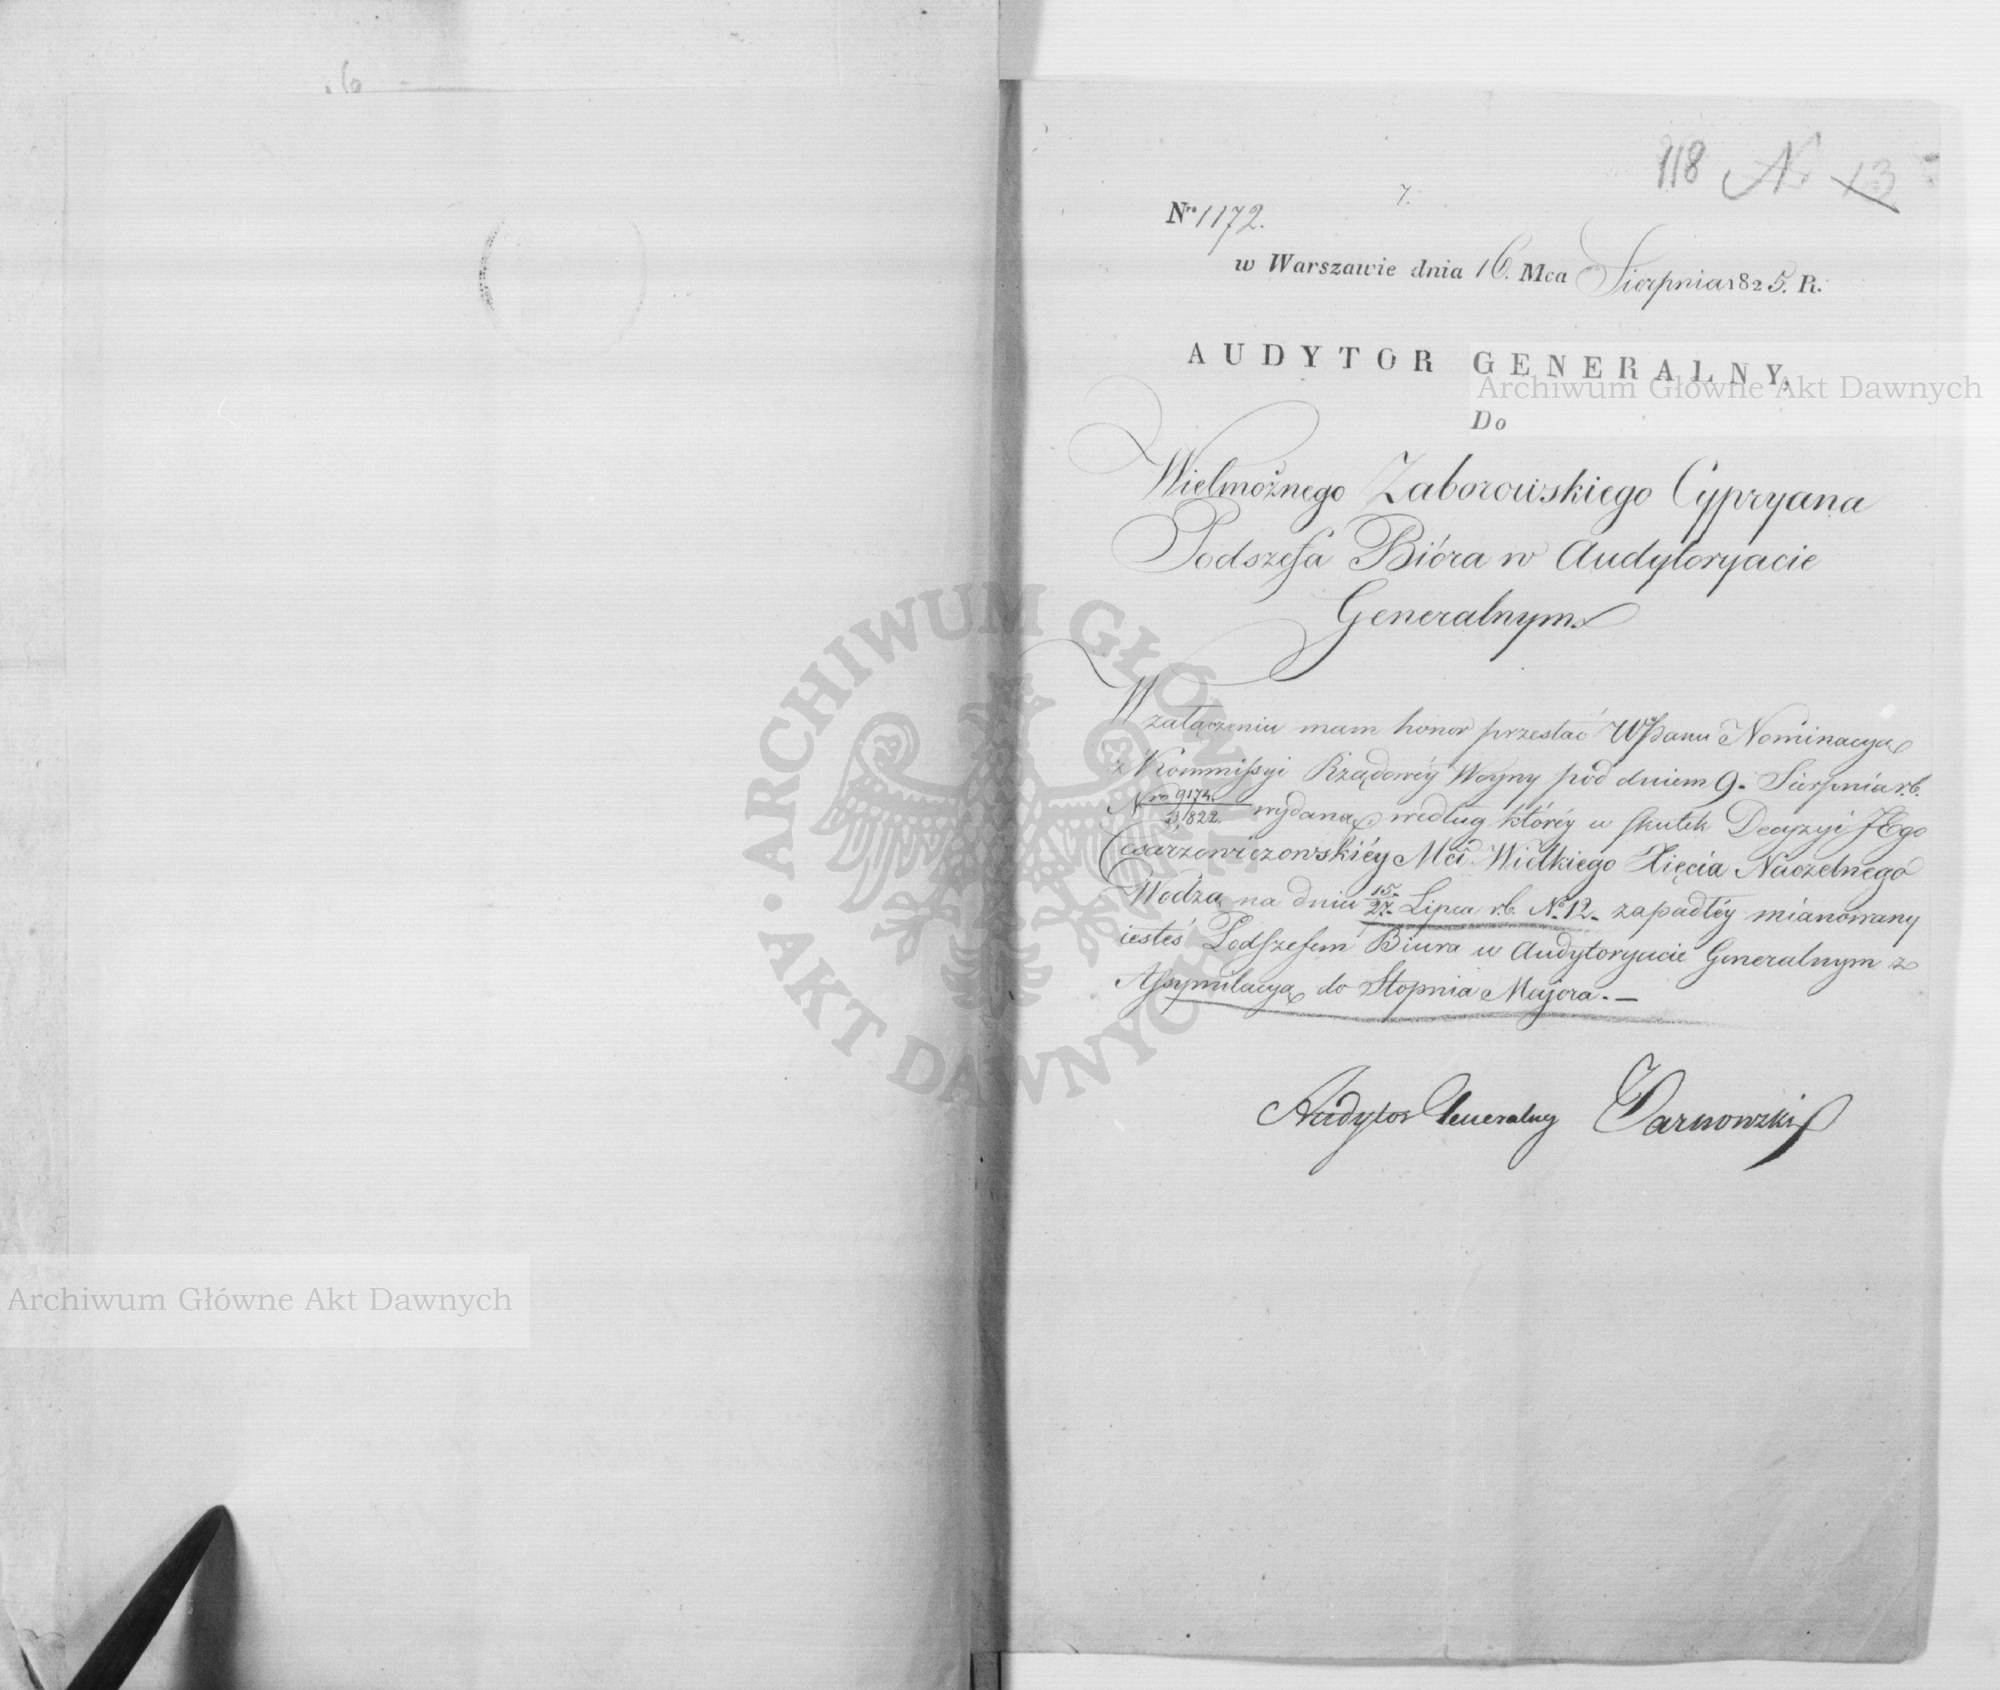 6
118 N 13
7.
Nro 1172.
w Warszawie dnia 16. Mca Sierpnia 1825. R.
AUDYTOR GENERALNY,
Archiwum Główne Akt Dawnych
Do
Wielmożnego Zaborowskiego Cypryana
Podszefa Bióra w Audytoryacie
Generalnym.
W załączeniu mam honor przesłać WPanu Nominacyą
z Kommissyi Rządowéy Woyny pod dniem 9. Sierpnia r.b.
Nro 9174./3,822. wydaną, według któréy w skutek Decyzyi JEgo
Cesarzewiczowskiéy Mci Wielkiego Xięcia Naczelnego
Wodza, na dniu 15./27. Lipca r.b. No 12. zapadłéy mianowany
iesteś Podszefem Biura w Audytoryacie Generalnym z
Assymilacyą do Stopnia Majora. —
Audytor Generalny Tarnowski
ARCHIWUM GŁÓWNE • AKT DAWNYCH •
Archiwum Główne Akt Dawnych